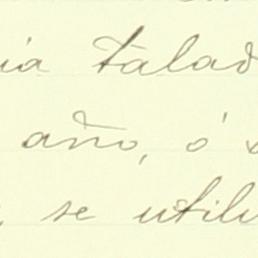 ia talad
año, ó
, se utili